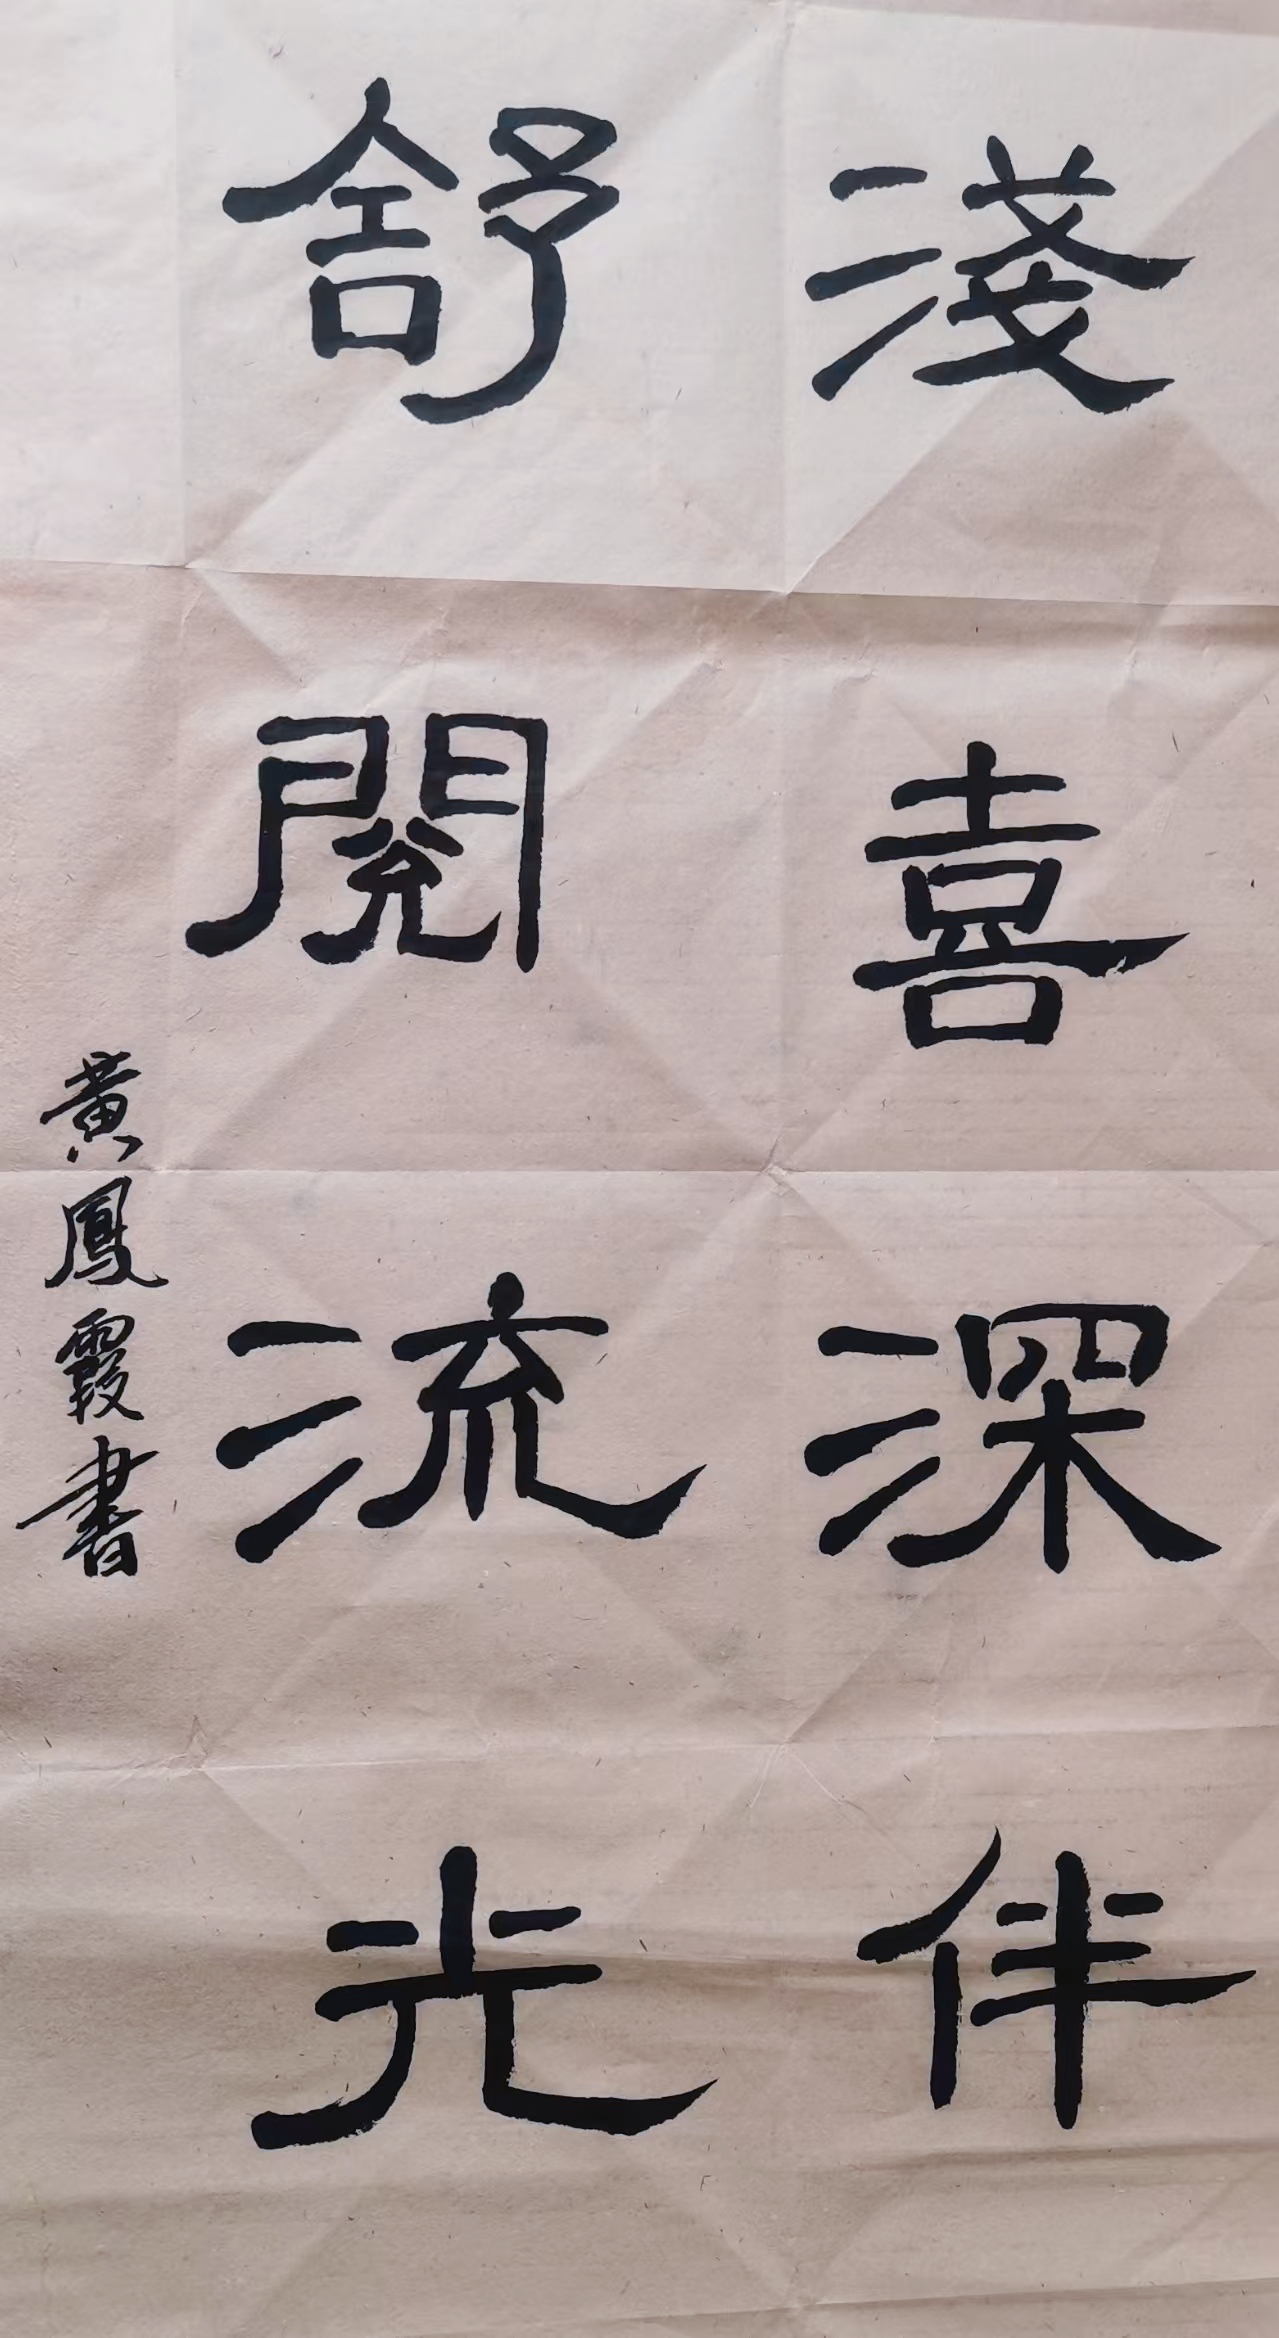 淺喜深伴
舒閱流光
黃鳳霞書